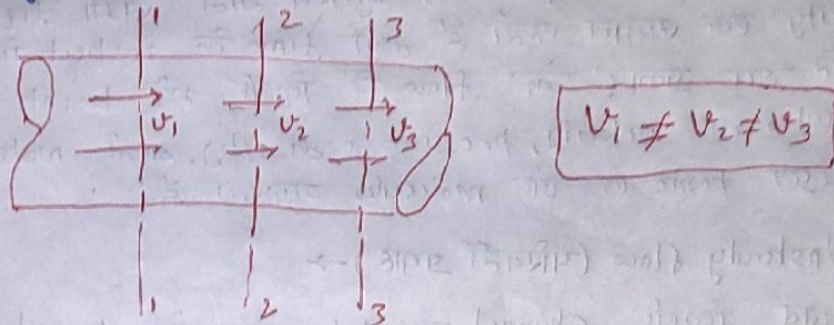 1 2 3
v₁ v₂ v₃
v₁ ≠ v₂ ≠ v₃
1 2 3